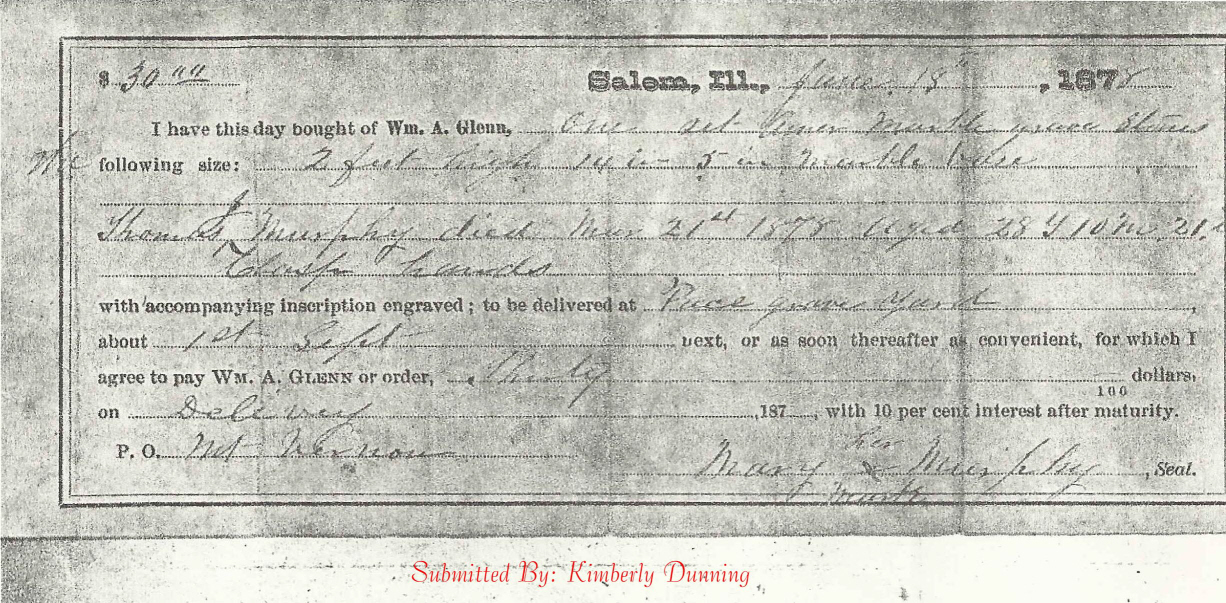 $ 30 00 Salem, Ill., June 18th, 1878
I have this day bought of Wm. A. Glenn, One set Amer Marble grave stones
following size: 2 feet high 14 in 5 in marble base
Thomas J Murphy died Mar 21st 1878 Aged 28 Y 10 m. 21.
Clasp hands
with accompanying inscription engraved; to be delivered at Pace grave yard,
about 1st Sept next, or as soon thereafter as convenient, for which I
agree to pay WM. A. GLENN or order, Thirty 100 dollars,
on Delivey ,187 , with 10 per cent interest after maturity.
P. O. Mt Vernon
her
Mary x Murphy, Seal.
mark
Submitted By: Kimberly Dunning